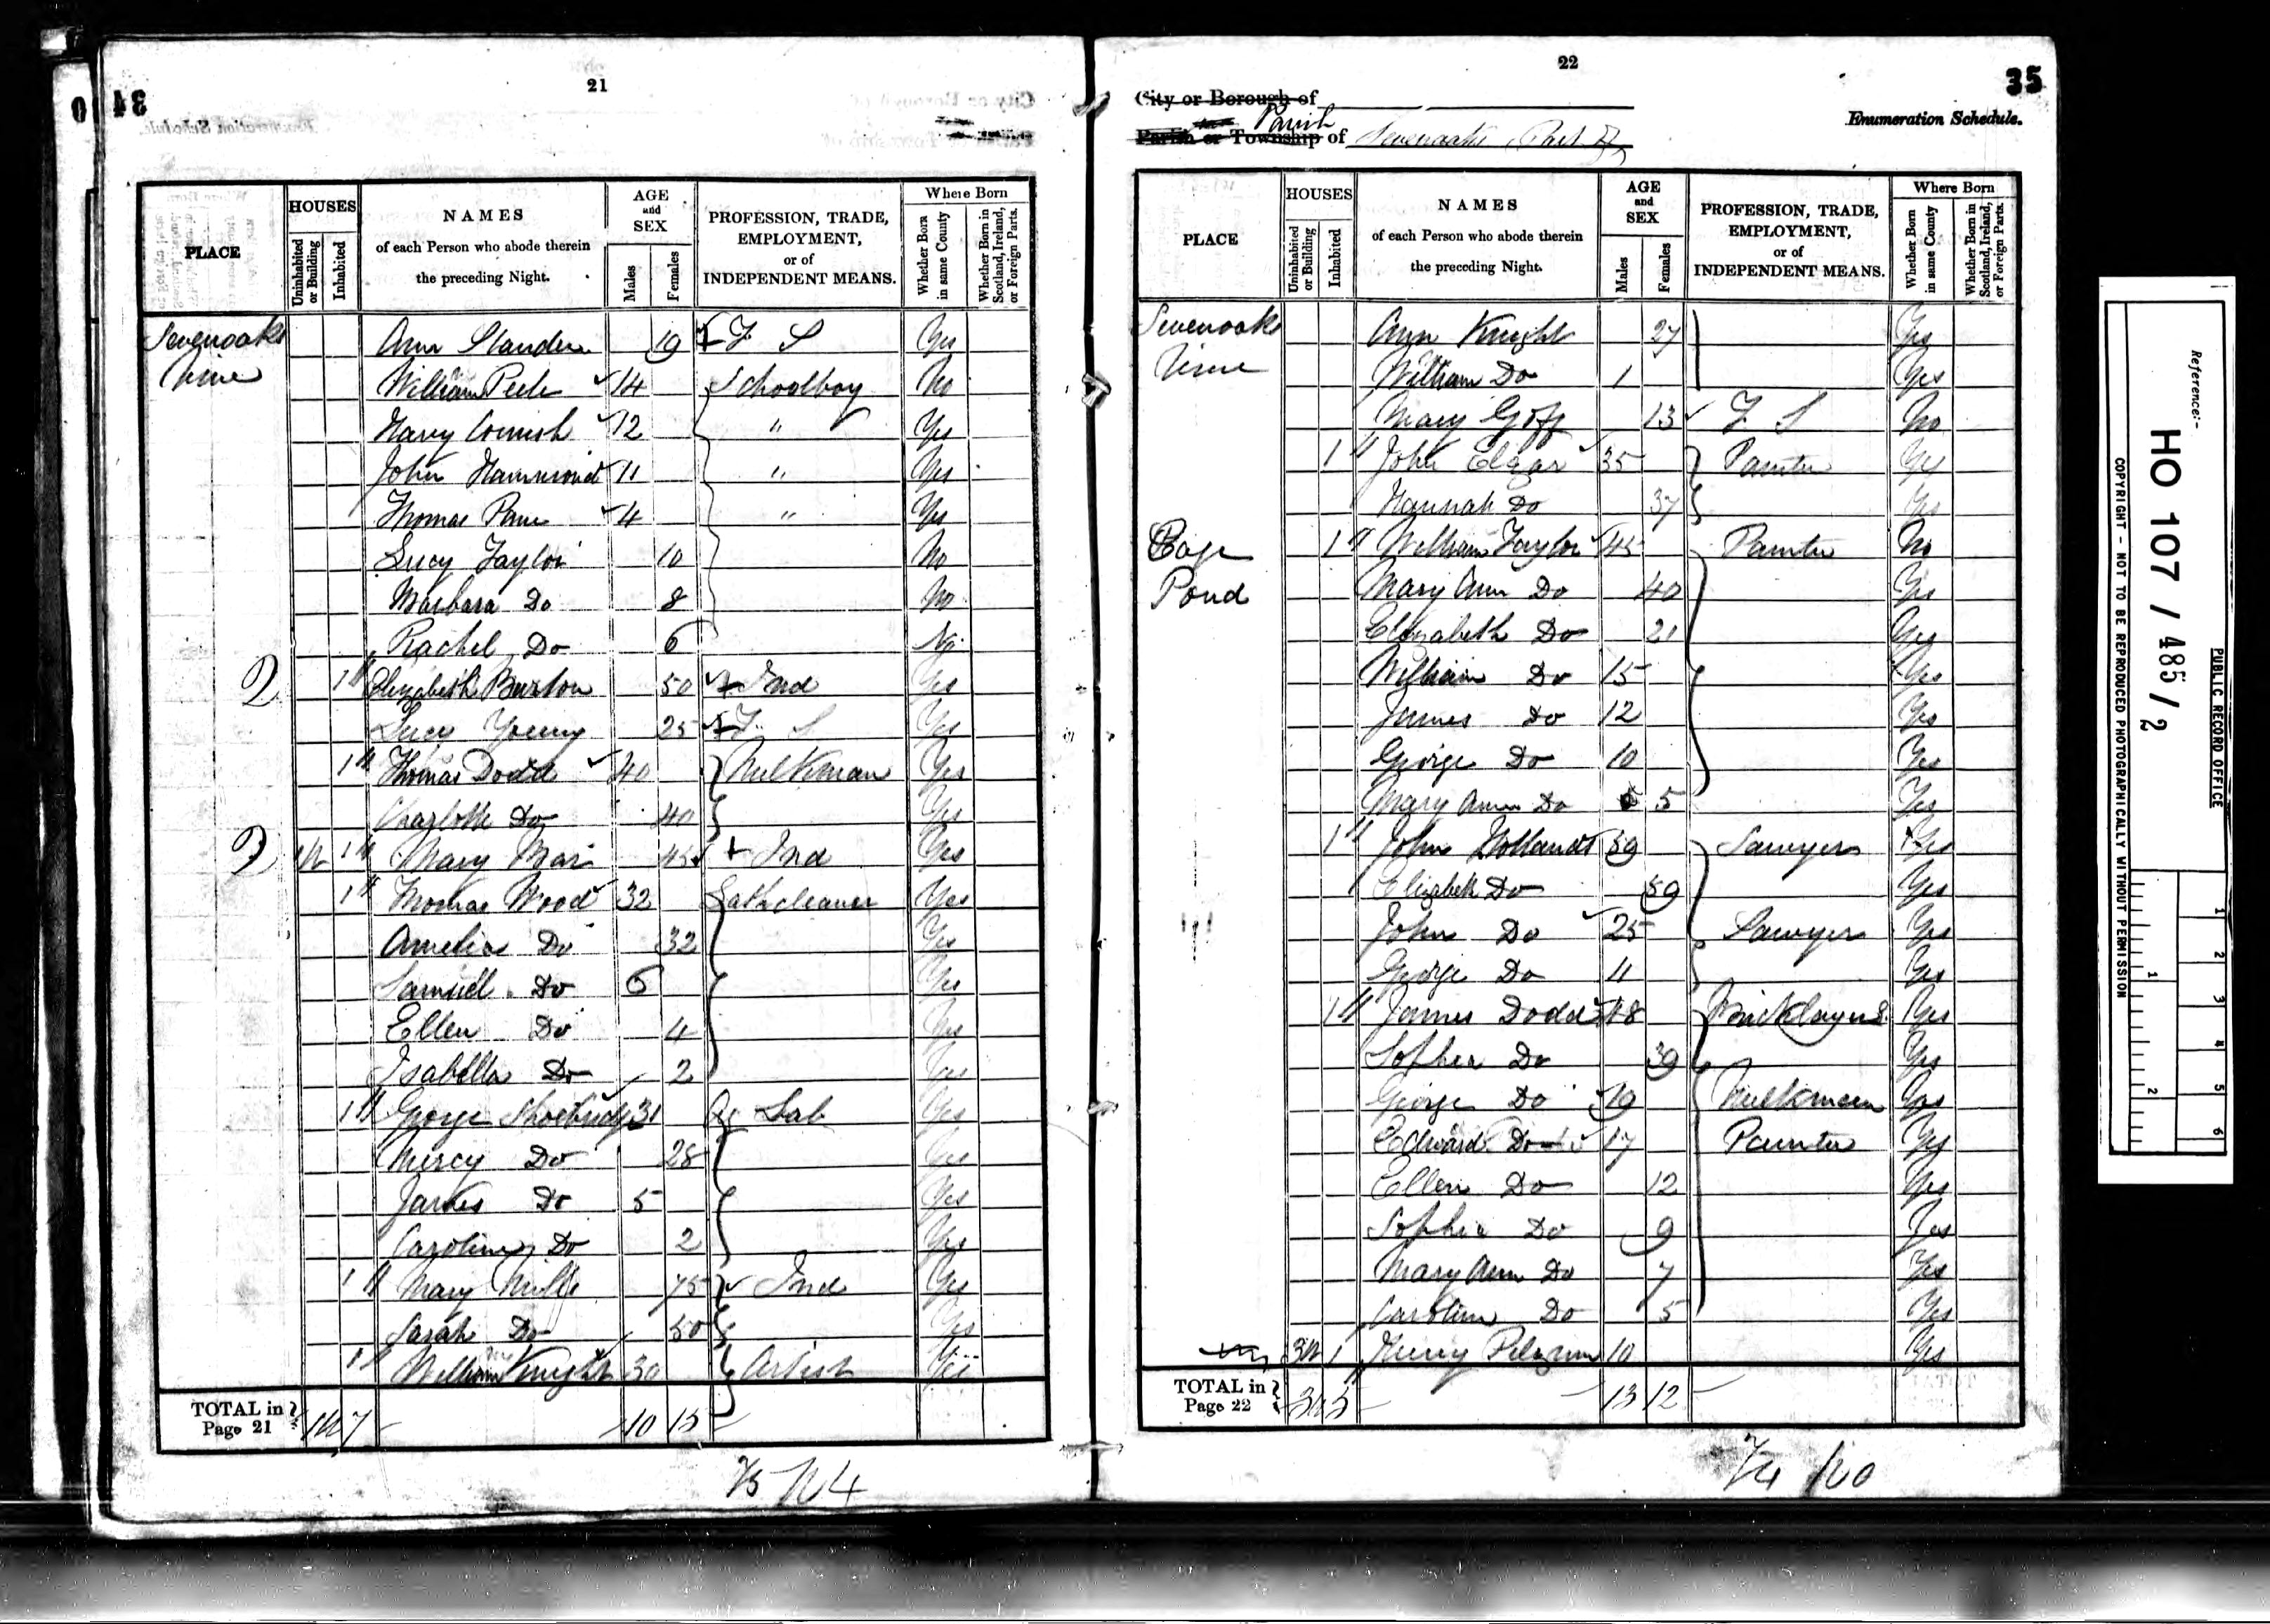 21
PLACE
HOUSES
Uninhabited or Building
Inhabited
NAMES
of each Person who abode therein
the preceding Night.
AGE
and
SEX
Males
Females
PROFESSION, TRADE,
EMPLOYMENT,
or of
INDEPENDENT MEANS.
Where Born
Whether Born in same County
Whether Born in Scotland, Ireland, or Foreign Parts.
Sevenoaks Ann 19 F S Yes
Vine William Peele 14 Schoolboy No
Harry Cornish 12 " Yes
John Hammond 11 " Yes
Thomas 4 " Yes
Lucy Taylor 10 No
Barbara Do 8 No
Rachel Do 6 No
2 1 Elizabeth Burton 50 Ind Yes
Lucy Young 25 F S Yes
1 Thomas Dodd 40 Milkman Yes
Charlotte Do 40 Yes
1 Mary 45 Ind Yes
1 Thomas Wood 32 Lathcleaver Yes
Amelia Do 32 Yes
Samuel Do 6 Yes
Ellen Do 4 Yes
Isabella Do 2 Yes
1 George Shoebridge 31 Ag Lab Yes
Mercy Do 28 Yes
James Do 5 Yes
Caroline Do 2 Yes
1 Mary Mills 75 Ind Yes
Sarah Do 50 Yes
1 William Knight 30 Artist Yes
TOTAL in Page 21 7 10 15
22
35
City or Borough of
Parish or Township of Parish Sevenoaks Part
Enumeration Schedule.
PLACE
HOUSES
Uninhabited or Building
Inhabited
NAMES
of each Person who abode therein
the preceding Night.
AGE
and
SEX
Males
Females
PROFESSION, TRADE,
EMPLOYMENT,
or of
INDEPENDENT MEANS.
Where Born
Whether Born in same County
Whether Born in Scotland, Ireland, or Foreign Parts.
Sevenoaks Ann Knight 27 Yes
Vine William Do 1 Yes
Mary Goff 13 F S No
1 John Elgar 35 Painter Yes
Hannah Do 37 Yes
1 William Taylor 45 Painter No
Pond Mary Ann Do 40 Yes
Elizabeth Do 21 Yes
William Do 15 Yes
James Do 12 Yes
George Do 10 Yes
Mary Ann Do 5 Yes
1 John Hollands 59 Sawyer Yes
Elizabeth Do 59 Yes
John Do 25 Sawyer Yes
George Do 11 Yes
1 James Dodd 48 Bricklayer Yes
Sophia Do 39 Yes
George Do 19 Milkman Yes
Edward Do 17 Painter Yes
Ellen Do 12 Yes
Sophia Do 9 Yes
Mary Ann Do 7 Yes
Caroline Do 5 Yes
1 Henry Pilgrim 10 Yes
TOTAL in Page 22 5 13 12
Reference:-
HO 107 / 485 / 2
PUBLIC RECORD OFFICE
COPYRIGHT - NOT TO BE REPRODUCED PHOTOGRAPHICALLY WITHOUT PERMISSION
1 2 3 4 5 6
1 2